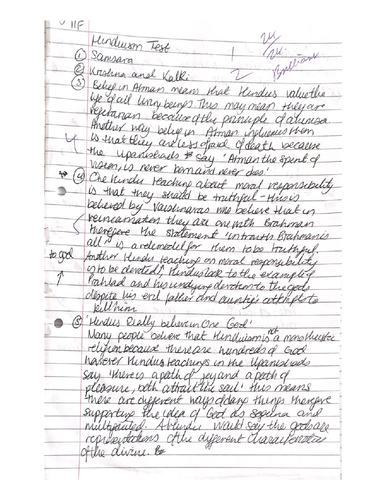 11F
Hinduism Test
① Samsara 1
② Krishna and Kalki 2 Brilliant
③ Belief in Atman means that Hindus value the
life of all living beings this may mean they are
vegetarian because of the principle of ahimsa
Another way belief in Atman influences them
is that they are less afraid of death because
the Upanishads say 'Atman the spirit of
vision, is never born and never dies.'
④ One Hindu teaching about moral responsibility
is that they should be truthful - this is
believed by Vaishnavas who believe that in
reincarnation they are one with Brahman
therefore the statement 'in truth Brahman is
all' is a role model for them to be truthful.
to god Another Hindu teaching on moral responsibility
is to be devoted, Hindus look to the example of
Prahlad and his undying devotion to the gods
despite his evil father and aunty's attempts to
kill him
⑤ 'Hindus Really believe in One God'
Many people believe that Hinduism is not a monotheistic
religion because there are hundreds of God
however Hindus teachings in the Upanishads
say 'there is a path of joy and a path of
pleasure, both attract the soul' this means
there are different ways of doing things therefore
supporting the idea of God as saguna and
A Hindu would say the gods are
representations of the different characteristics
of the divine.